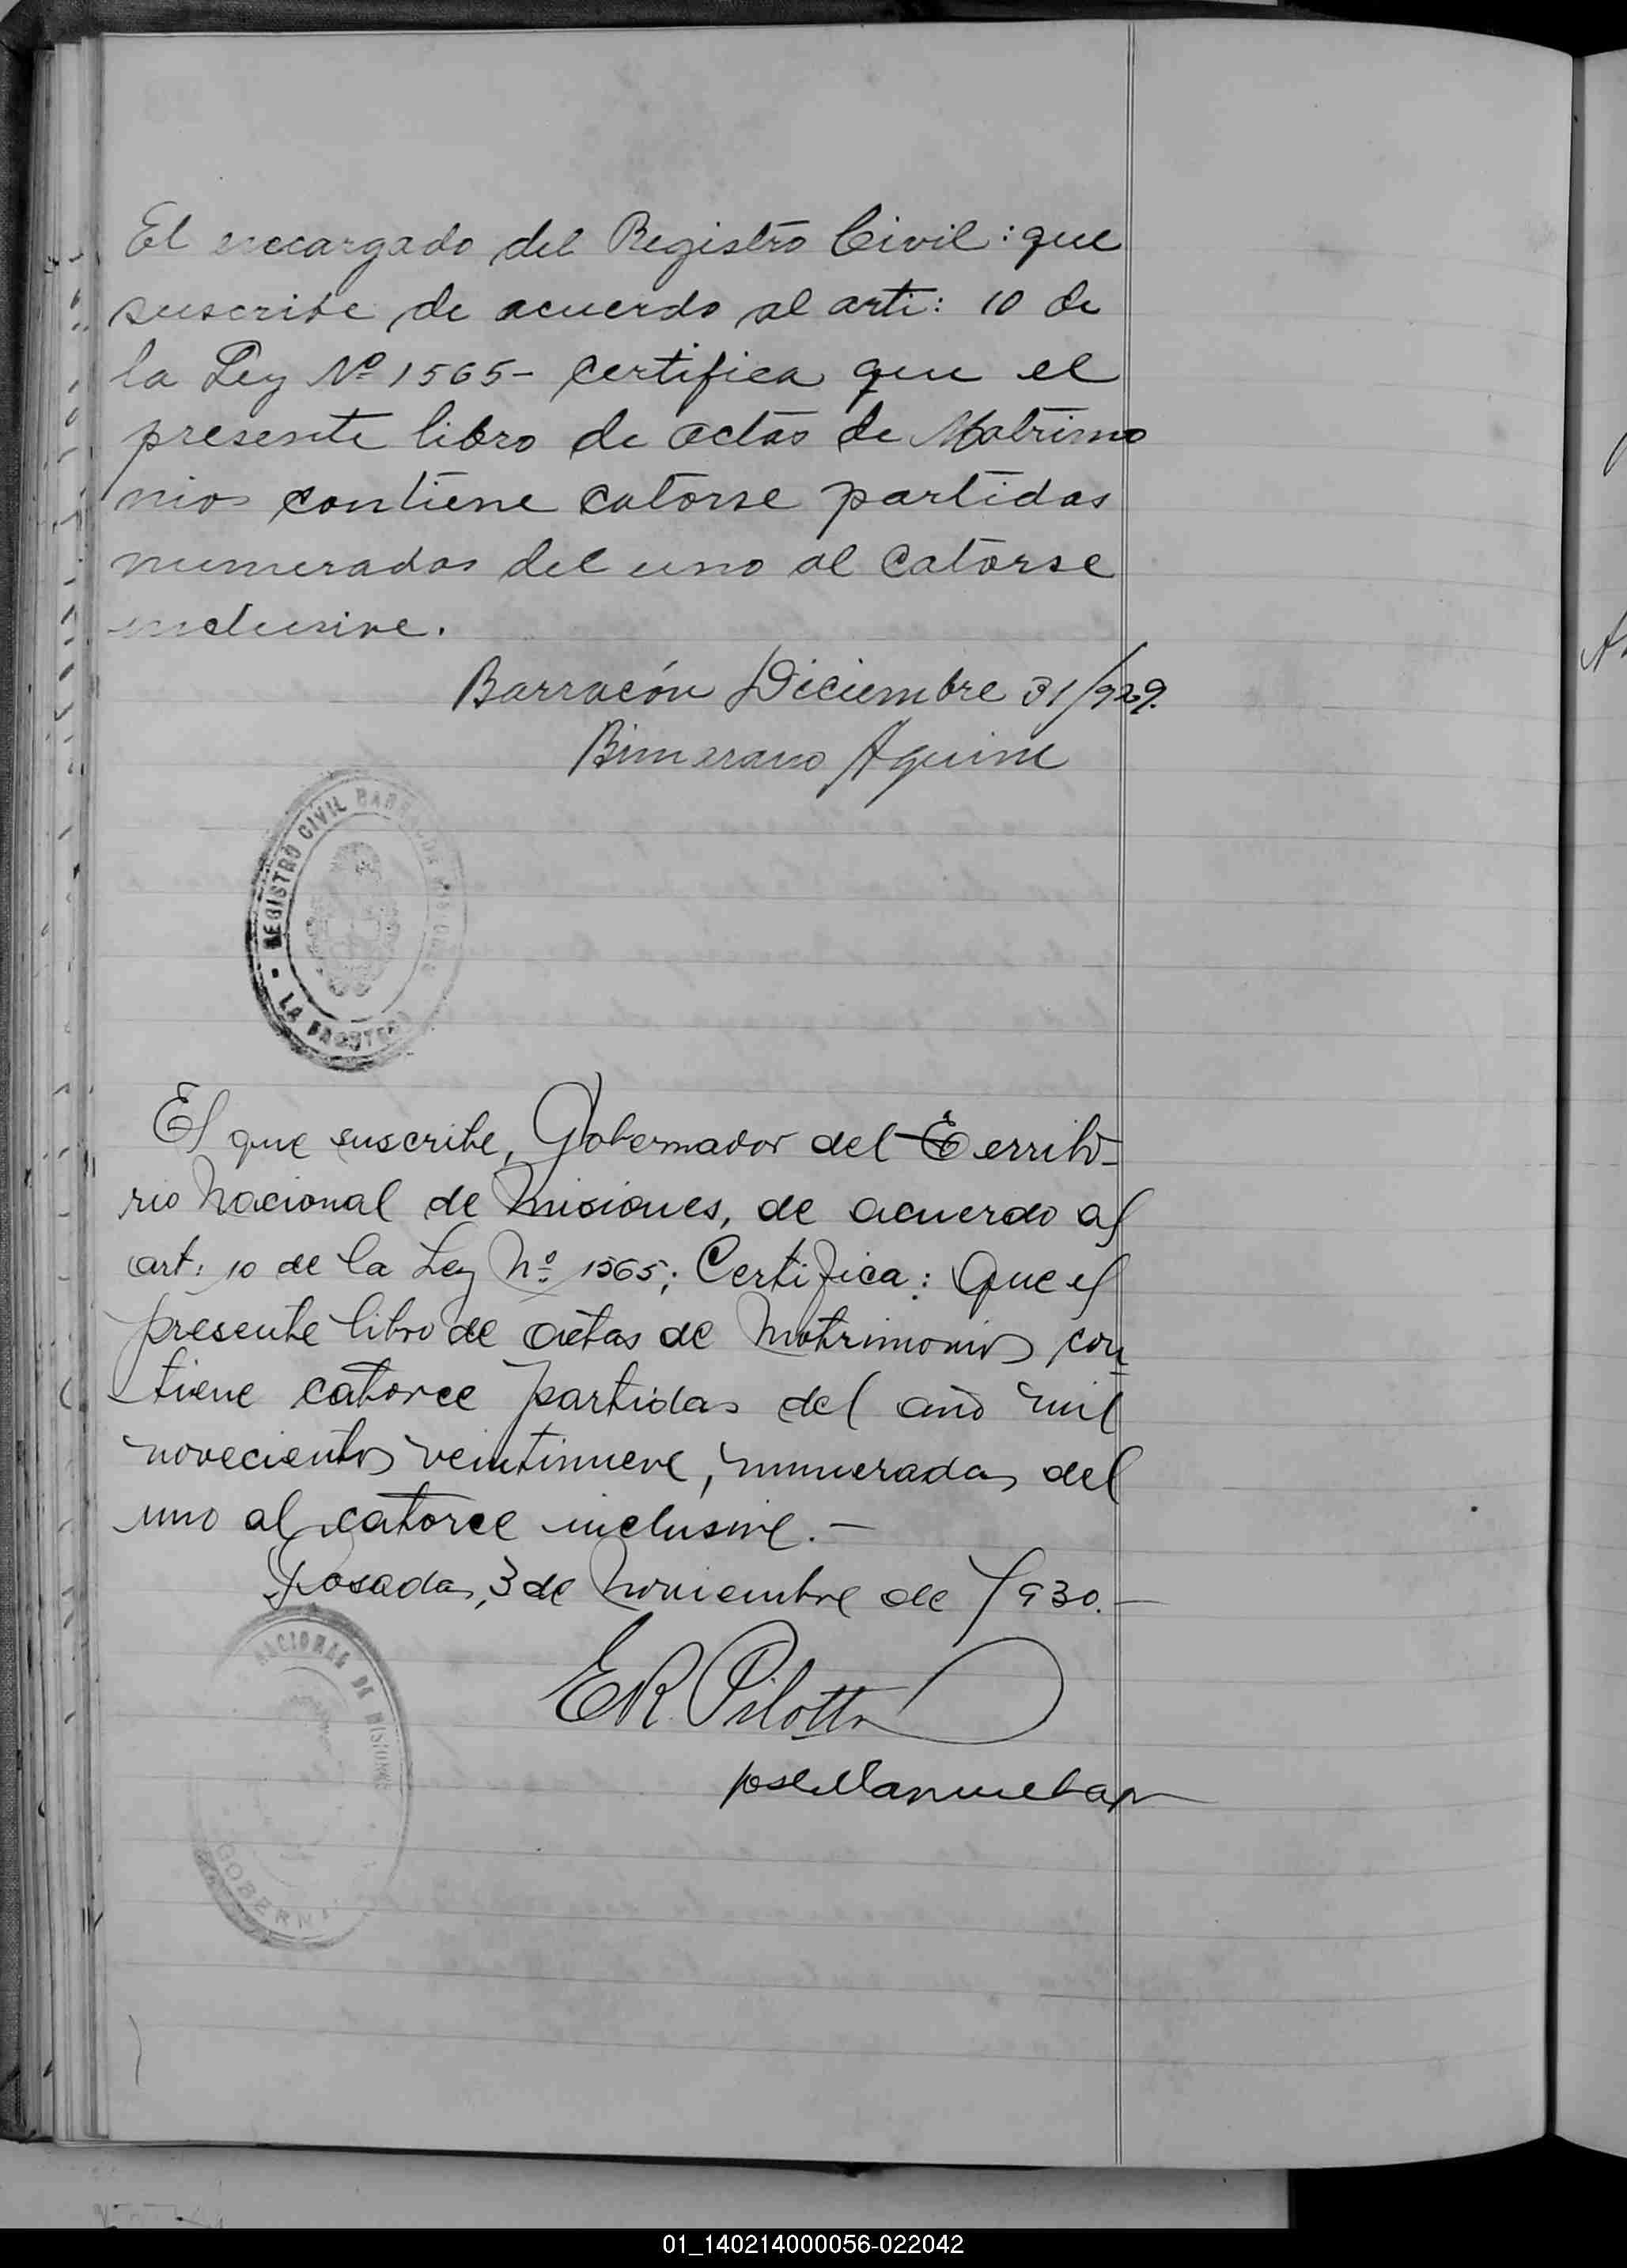 El encargado del Registro Civil: que
suscribe de acuerdo al arti: 10 de
la Ley Nº 1565- certifica que el
presente libro de actas de Matrimo
nios contiene catorse partidas
numeradas del uno al catorse
inclusive.
Barracón Diciembre 31/929.
Aguirre
REGISTRO CIVIL BARRACON MISIONES
LA FRONTERA
El que suscribe, Gobernador del Territo-
rio Nacional de Misiones, de acuerdo al
art: 10 de la Ley Nº 1565; Certifica: Que el
presente libro de actas de Matrimonios con
tiene catorce partidas del año mil
novecientos veintinueve, numeradas del
uno al catorce inclusive.-
Posadas, 3 de Noviembre de 1930.-
ER Pilotto
DE MISIONES
GOBERN
01_140214000056-022042